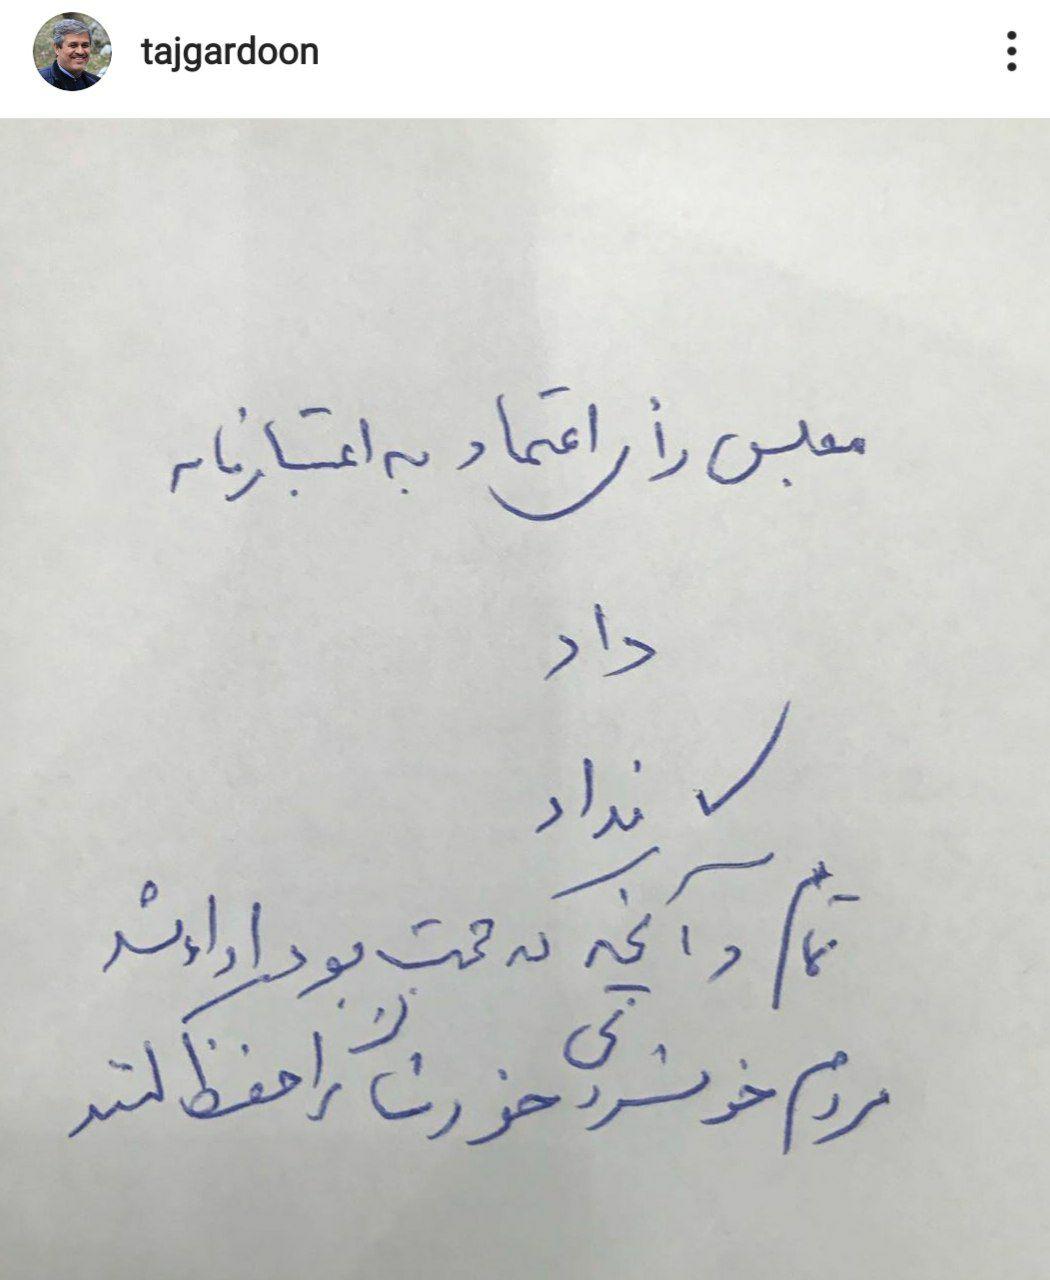 tajgardoon
مجلس رأی اعتماد به اعتبارنامه
داد
نداد
تمام و آنچه که تهمت بود ارائه شد
مردم خونسردی خودشان را حفظ کنند